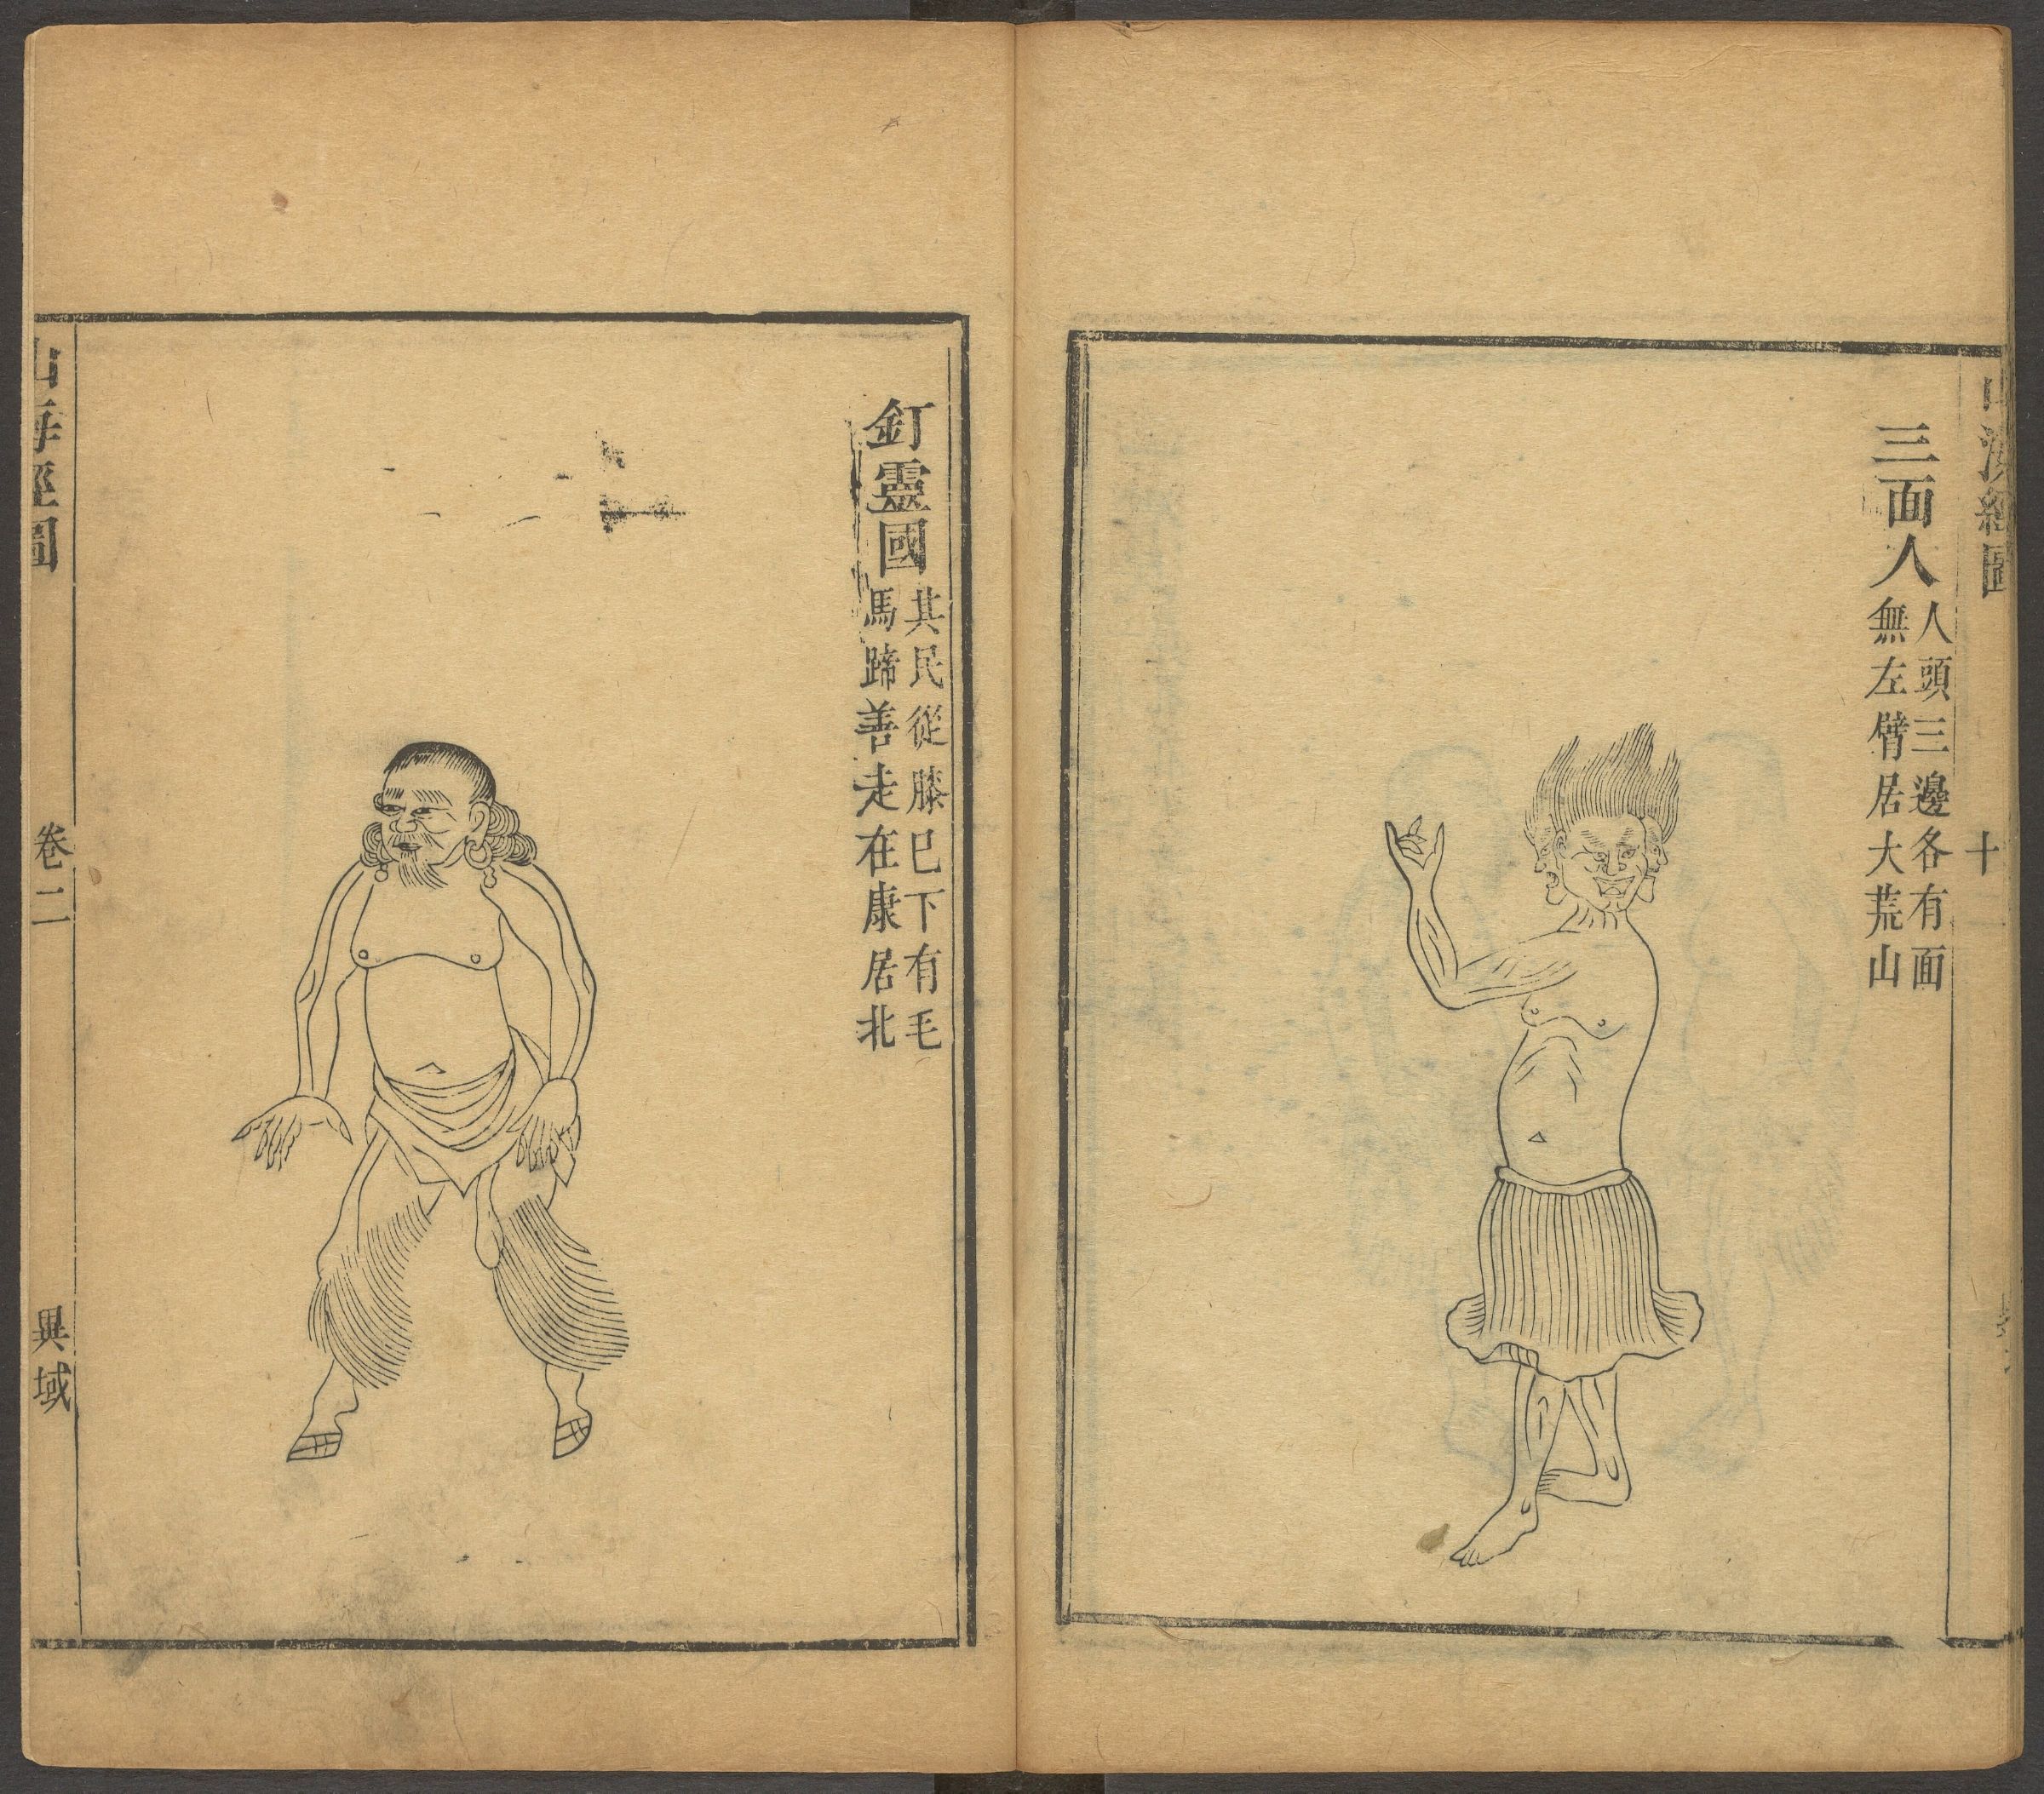 三面人
人頭三邊各有面
無左臂居大荒山
十
釘靈國
其民從膝已下有毛
馬蹄善走在康居北
山海經圖
卷二
異域